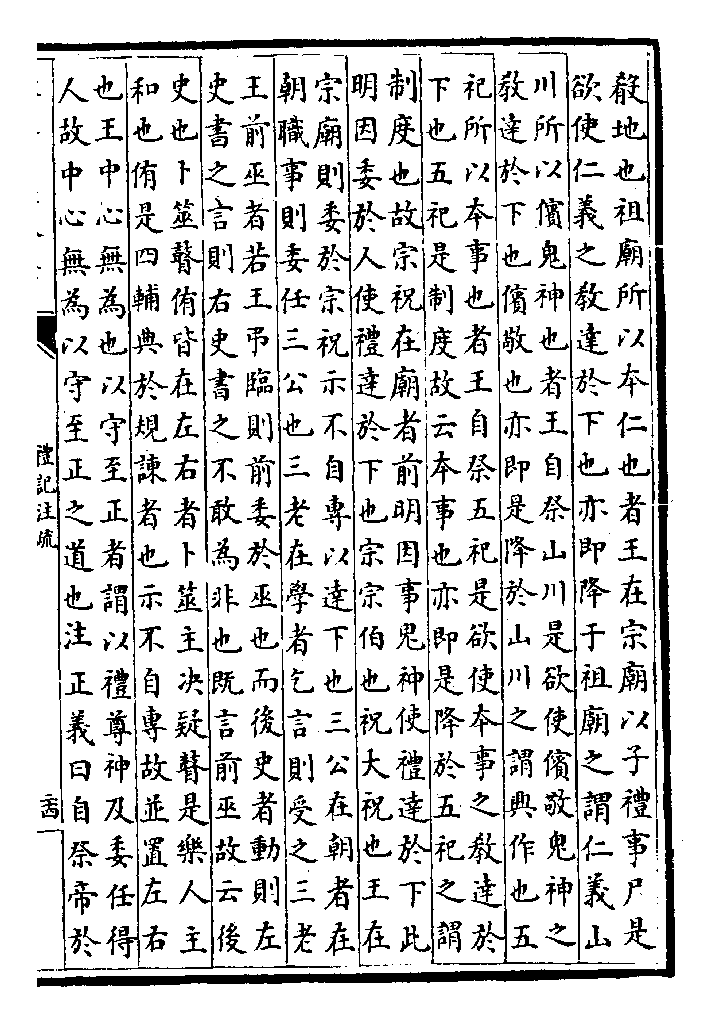 殽地也祖廟所以本仁也者王在宗廟以子禮事尸是
欲使仁義之教達於下也亦即降于祖廟之謂仁義山
川所以儐鬼神也者王自祭山川是欲使儐敬鬼神之
教達於下也儐敬也亦即是降於山川之謂興作也五
祀所以本事也者王自祭五祀是欲使本事之教達於
下也五祀是制度故云本事也亦即是降於五祀之謂
制度也故宗祝在廟者前明因事鬼神使禮達於下此
明因委於人使禮達於下也宗宗伯也祝大祝也王在
宗廟則委於宗祝示不自專以達下也三公在朝者在
朝職事則委任三公也三老在學者乞言則受之三老
王前巫者若王弔臨則前委於巫也而後史者動則左
史書之言則右史書之不敢為非也既言前巫故云後
史也卜筮瞽侑皆在左右者卜筮主决疑瞽是樂人主
和也侑是四輔典於規諫者也示不自專故並置左右
也王中心無為也以守至正者謂以禮尊神及委任得
人故中心無為以守至正之道也注正義曰自祭帝於
禮記注疏
二十四